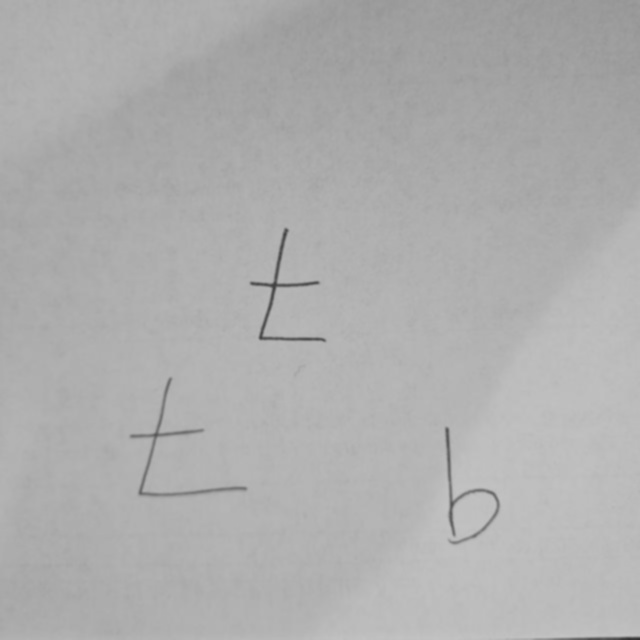 t
t b